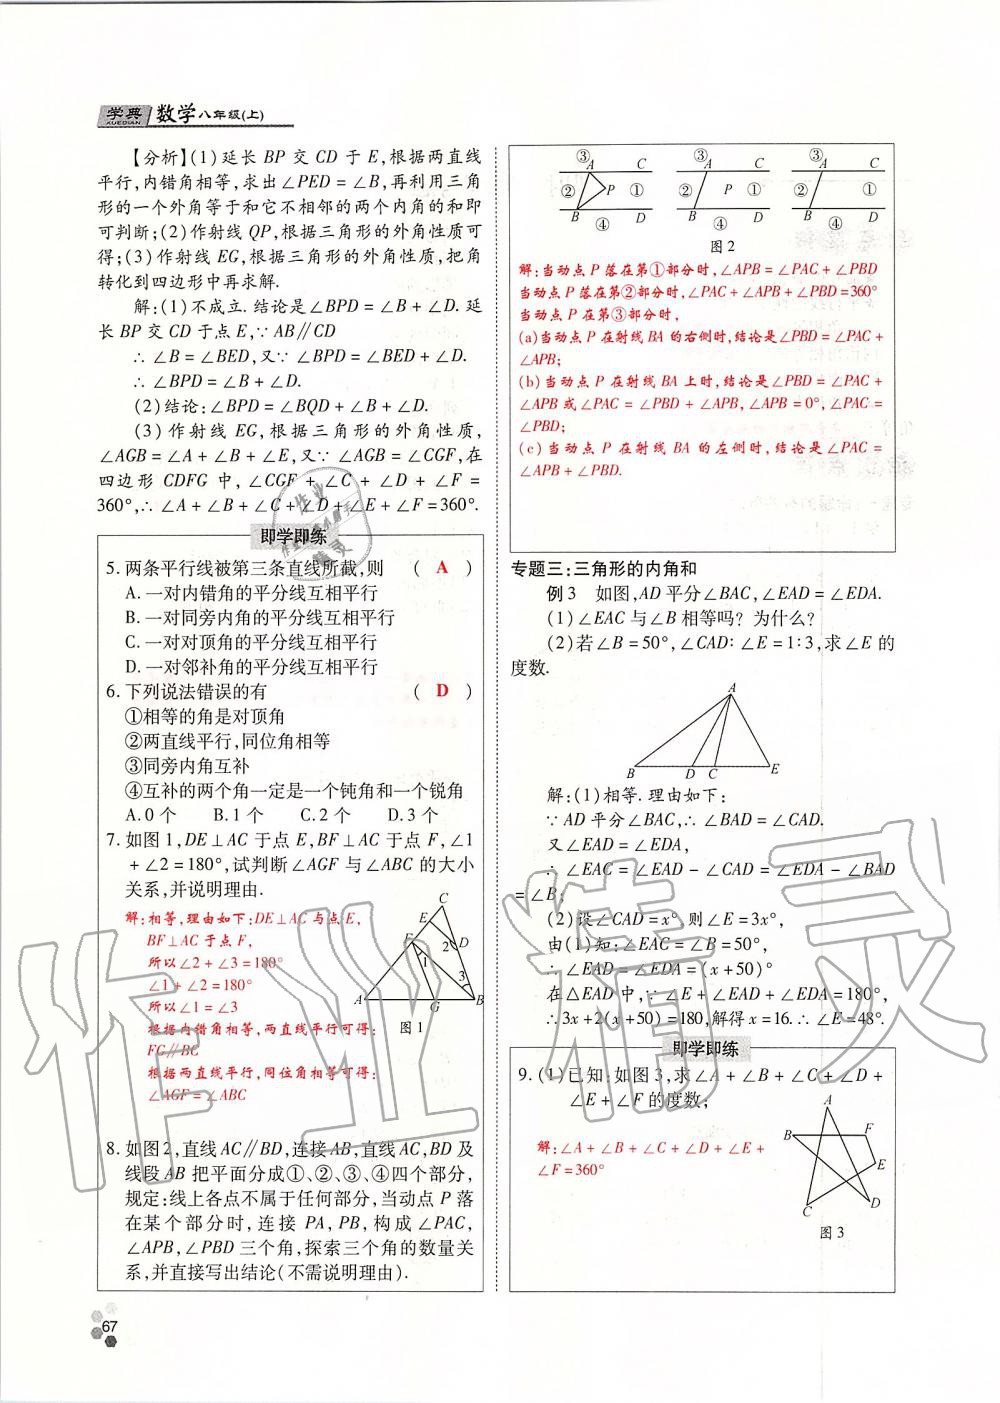 学典 数学八年级(上)
XUEDIAN
【分析】(1)延长 BP 交 CD 于 E,根据两直线
平行,内错角相等,求出∠PED=∠B,再利用三角
形的一个外角等于和它不相邻的两个内角的和即
可判断;(2)作射线 QP,根据三角形的外角性质可
得;(3)作射线 EG,根据三角形的外角性质,把角
转化到四边形中再求解.
解:(1)不成立.结论是∠BPD=∠B+∠D.延
长 BP 交 CD 于点 E,∵AB∥CD
∴∠B=∠BED,又∵∠BPD=∠BED+∠D.
∴∠BPD=∠B+∠D.
(2)结论:∠BPD=∠BQD+∠B+∠D.
(3)作射线 EG,根据三角形的外角性质,
∠AGB=∠A+∠B+∠E,又∵∠AGB=∠CGF,在
四边形 CDFG 中,∠CGF+∠C+∠D+∠F=
360°,∴∠A+∠B+∠C+∠D+∠E+∠F=360°.
即学即练
5.两条平行线被第三条直线所截,则 ( A )
A.一对内错角的平分线互相平行
B.一对同旁内角的平分线互相平行
C.一对对顶角的平分线互相平行
D.一对邻补角的平分线互相平行
6.下列说法错误的有 ( D )
①相等的角是对顶角
②两直线平行,同位角相等
③同旁内角互补
④互补的两个角一定是一个钝角和一个锐角
A.0个 B.1个 C.2个 D.3个
7.如图1,DE⊥AC 于点 E,BF⊥AC 于点 F,∠1
+∠2=180°,试判断∠AGF 与∠ABC 的大小
关系,并说明理由.
解:相等,理由如下:DE⊥AC 与点 E,
BF⊥AC 于点 F,
所以∠2+∠3=180°
∠1+∠2=180°
所以∠1=∠3
根据内错角相等,两直线平行可得:
FG∥BC
根据两直线平行,同位角相等可得:
∠AGF=∠ABC
C
E
F 2 D
1
3
A G B
图1
8.如图2,直线 AC∥BD,连接 AB,直线 AC,BD 及
线段 AB 把平面分成①、②、③、④四个部分,
规定:线上各点不属于任何部分,当动点 P 落
在某个部分时,连接 PA,PB,构成∠PAC,
∠APB,∠PBD 三个角,探索三个角的数量关
系,并直接写出结论(不需说明理由).
67
③ A C ③ A C ③ A C
② P ① ② P ① ② ①
B D B D B D
④ ④ ④
图2
解:当动点 P 落在第①部分时,∠APB=∠PAC+∠PBD
当动点 P 落在第②部分时,∠PAC+∠APB+∠PBD=360°
当动点 P 在第③部分时,
(a)当动点 P 在射线 BA 的右侧时,结论是∠PBD=∠PAC+
∠APB;
(b)当动点 P 在射线 BA 上时,结论是∠PBD=∠PAC+
∠APB 或∠PAC=∠PBD+∠APB,∠APB=0°,∠PAC=
∠PBD;
(c)当动点 P 在射线 BA 的左侧时,结论是∠PAC=
∠APB+∠PBD.
专题三:三角形的内角和
例3 如图,AD 平分∠BAC,∠EAD=∠EDA.
(1)∠EAC 与∠B 相等吗?为什么?
(2)若∠B=50°,∠CAD∶∠E=1∶3,求∠E 的
度数.
A
B D C E
解:(1)相等.理由如下:
∵AD 平分∠BAC,∴∠BAD=∠CAD.
又∠EAD=∠EDA,
∴∠EAC=∠EAD-∠CAD=∠EDA-∠BAD
=∠B;
(2)设∠CAD=x°.则∠E=3x°,
由(1)知:∠EAC=∠B=50°,
∴∠EAD=∠EDA=(x+50)°
在△EAD 中,∵∠E+∠EAD+∠EDA=180°,
∴3x+2(x+50)=180,解得 x=16.∴∠E=48°.
即学即练
9.(1)已知:如图3,求∠A+∠B+∠C+∠D+
∠E+∠F 的度数;
解:∠A+∠B+∠C+∠D+∠E+
∠F=360°
A
B F
E
C D
图3
作业精灵